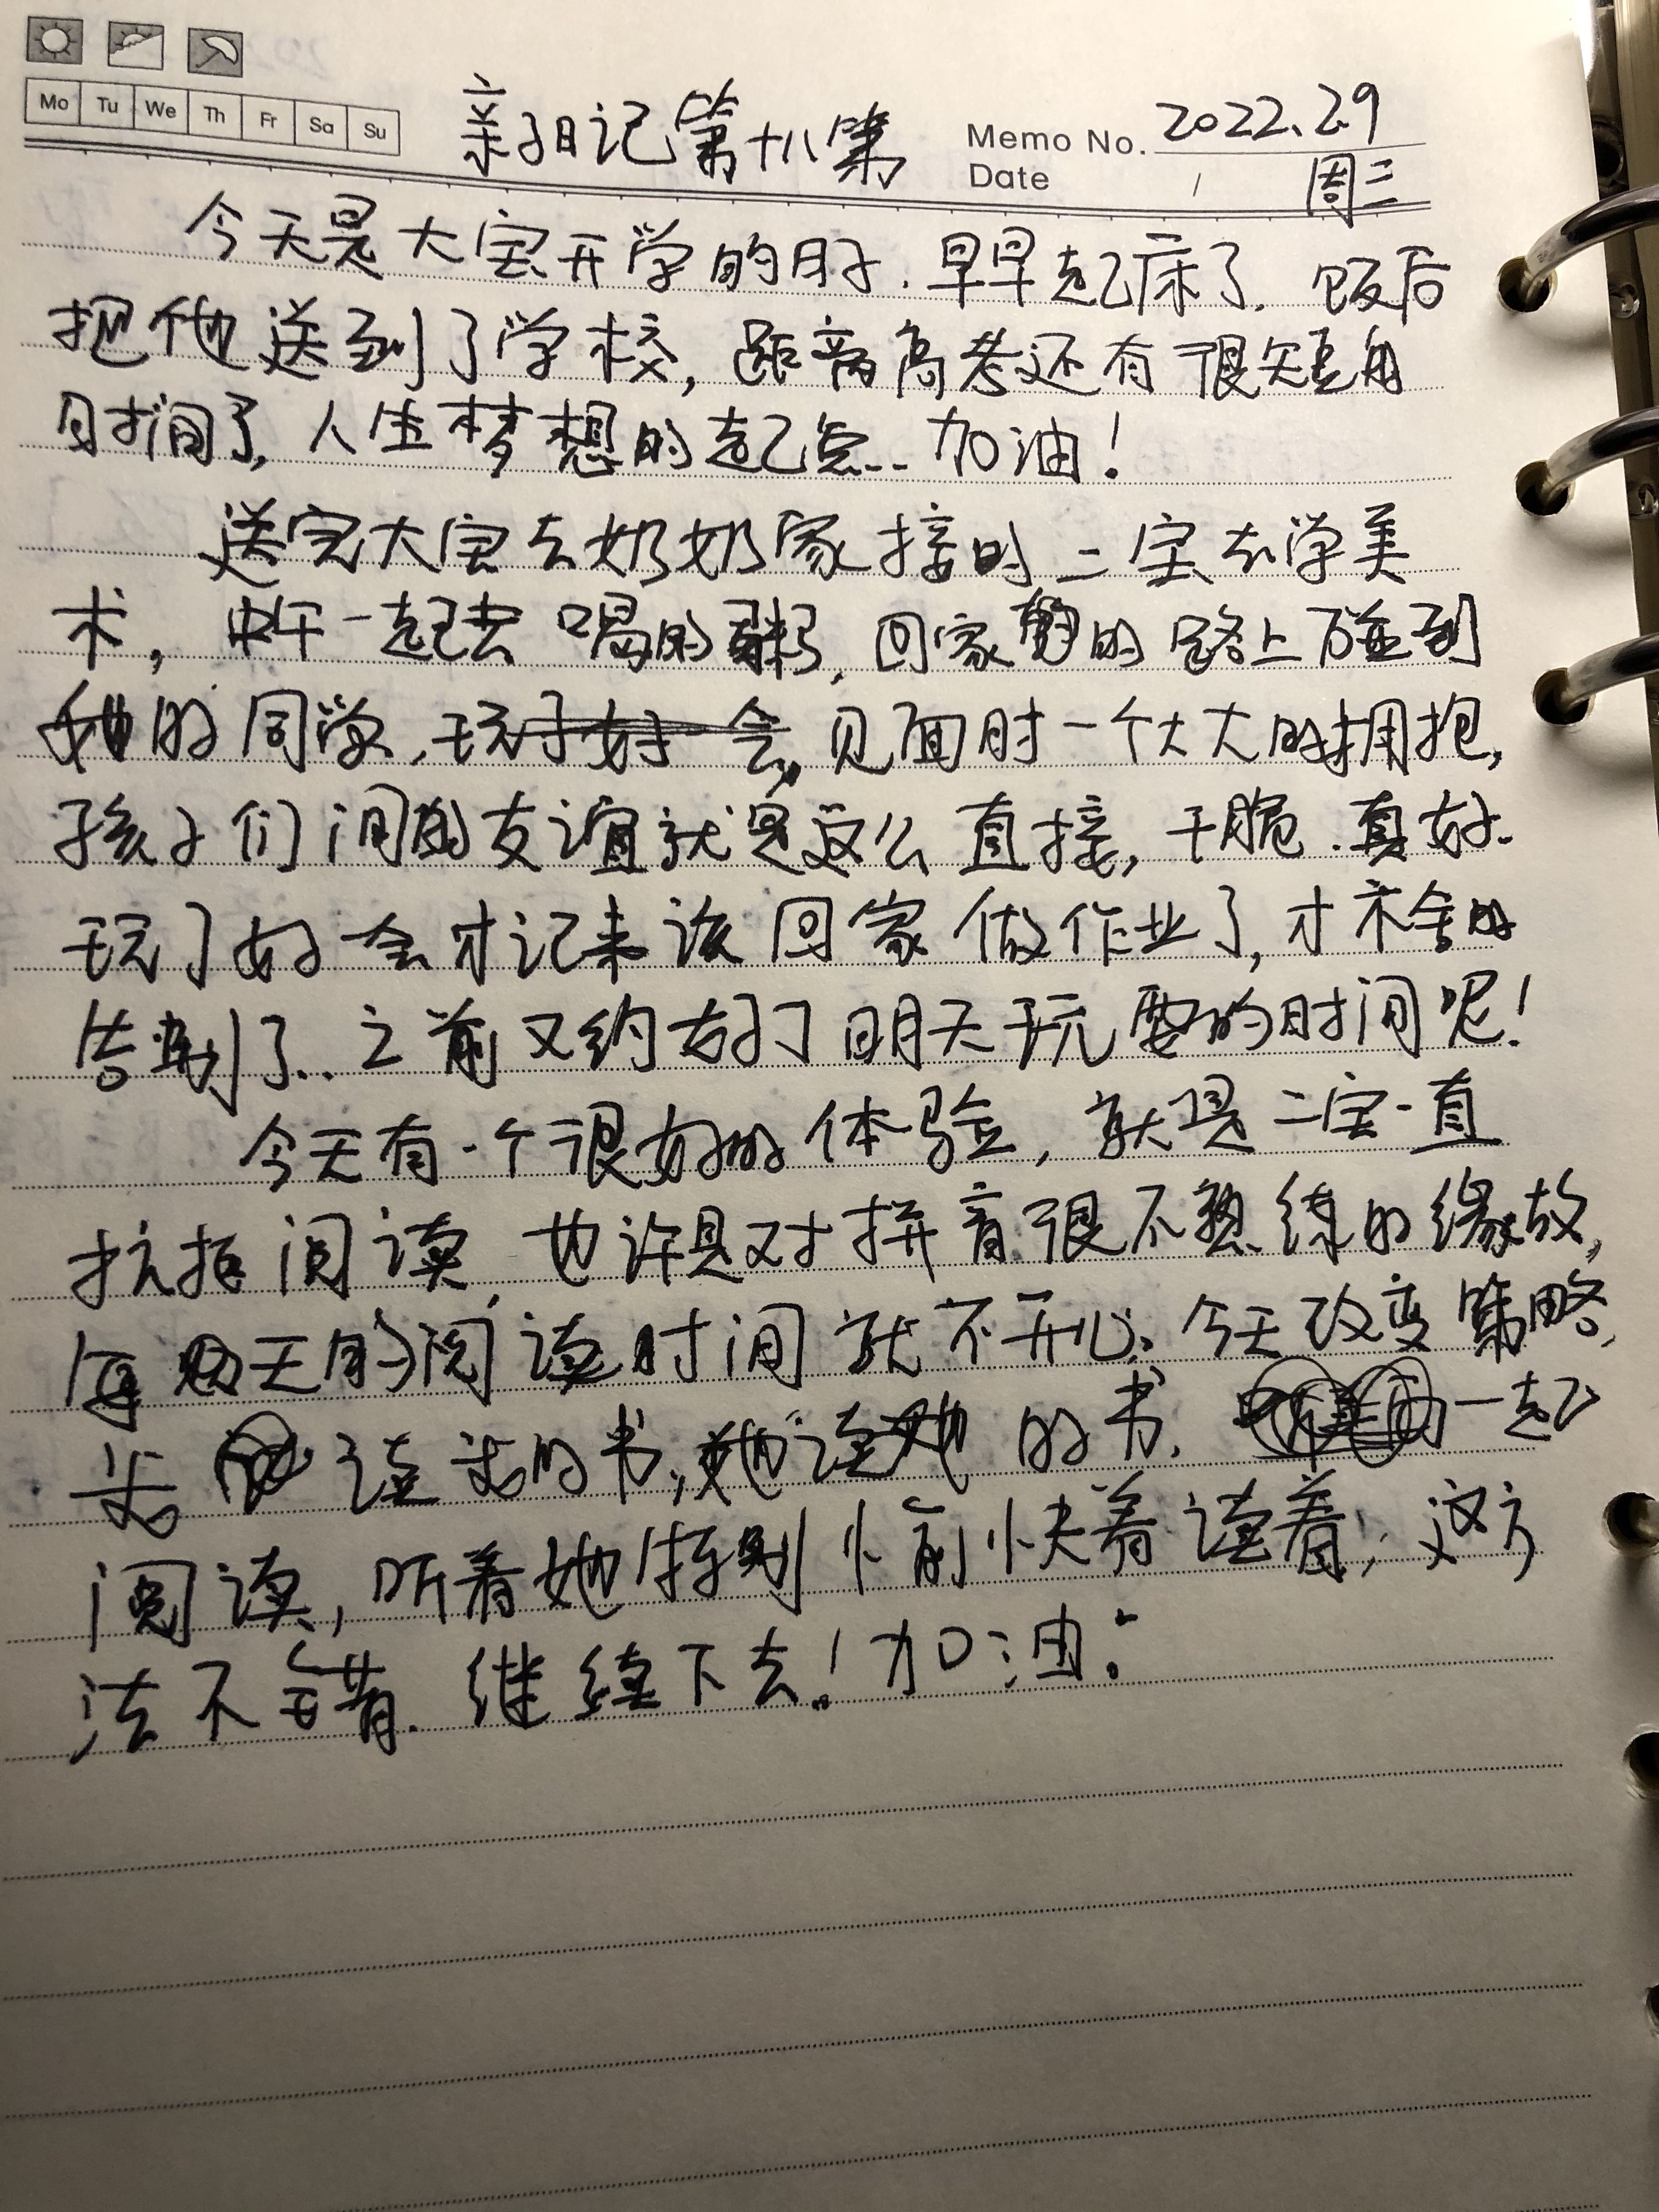 Mo Tu We Th Fr Sa Su
亲子日记第十八篇
Memo No. 2022.2.9
Date 周三
今天是大宝开学的日子.早早起床了.饭后
把他送到了学校,距离高考还有很短的
时间了,人生梦想的起点..加油!
送完大宝去奶奶家接的二宝去学美
术,中午一起去喝的粥,回家的路上碰到
她的同学,玩了好一会,见面时一个大大的拥抱,
孩子们间的友谊就是这么直接,干脆.真好.
玩了好会才记来该回家做作业了,才不舍的
告别了..之前又约好了明天玩耍的时间呢!
今天有一个很好的体验,就是二宝一直
抗拒阅读,也许是对拼音很不熟练的缘故,
每天的阅读时间就不开心.今天改变策略,
我读我的书,她读她的书.一起
阅读,听着她特别愉快着读着,这方
法不错.继续下去!加油!